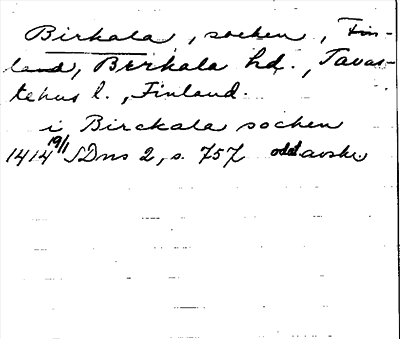 Birkala, socken, Fin-
land, Birkala hd., Tavas-
tehus l., Finland.
i Birckala sochen
1414 19/1 SDns 2, s. 757 avskr.